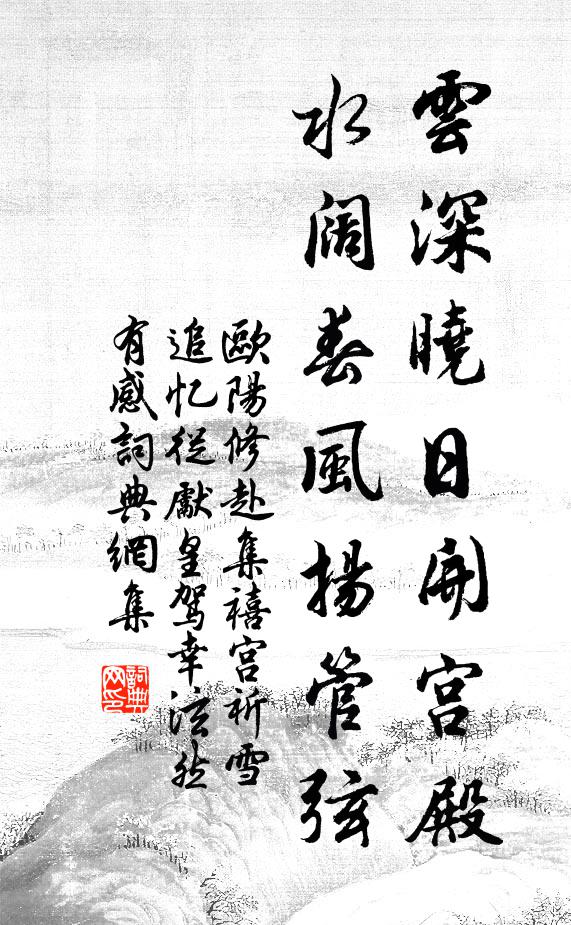 雲深曉日開宮殿
水闊春風揚管弦
歐陽修赴集禧宮祈雪
追忆從獻皇駕幸泫然
有感詞典網集
詞典网印